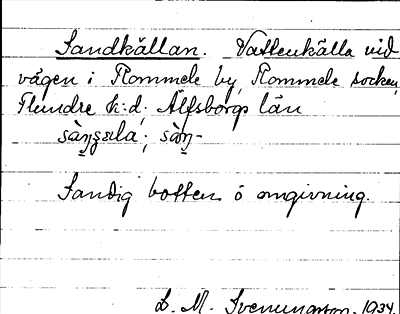 Sandkällan. Vattenkälla vid
vägen i Rommele by, Rommele socken,
Flundre h:d, Älfsborgs län
Sandig botten o omgivning.
L. M. Svenungsson. 1934.